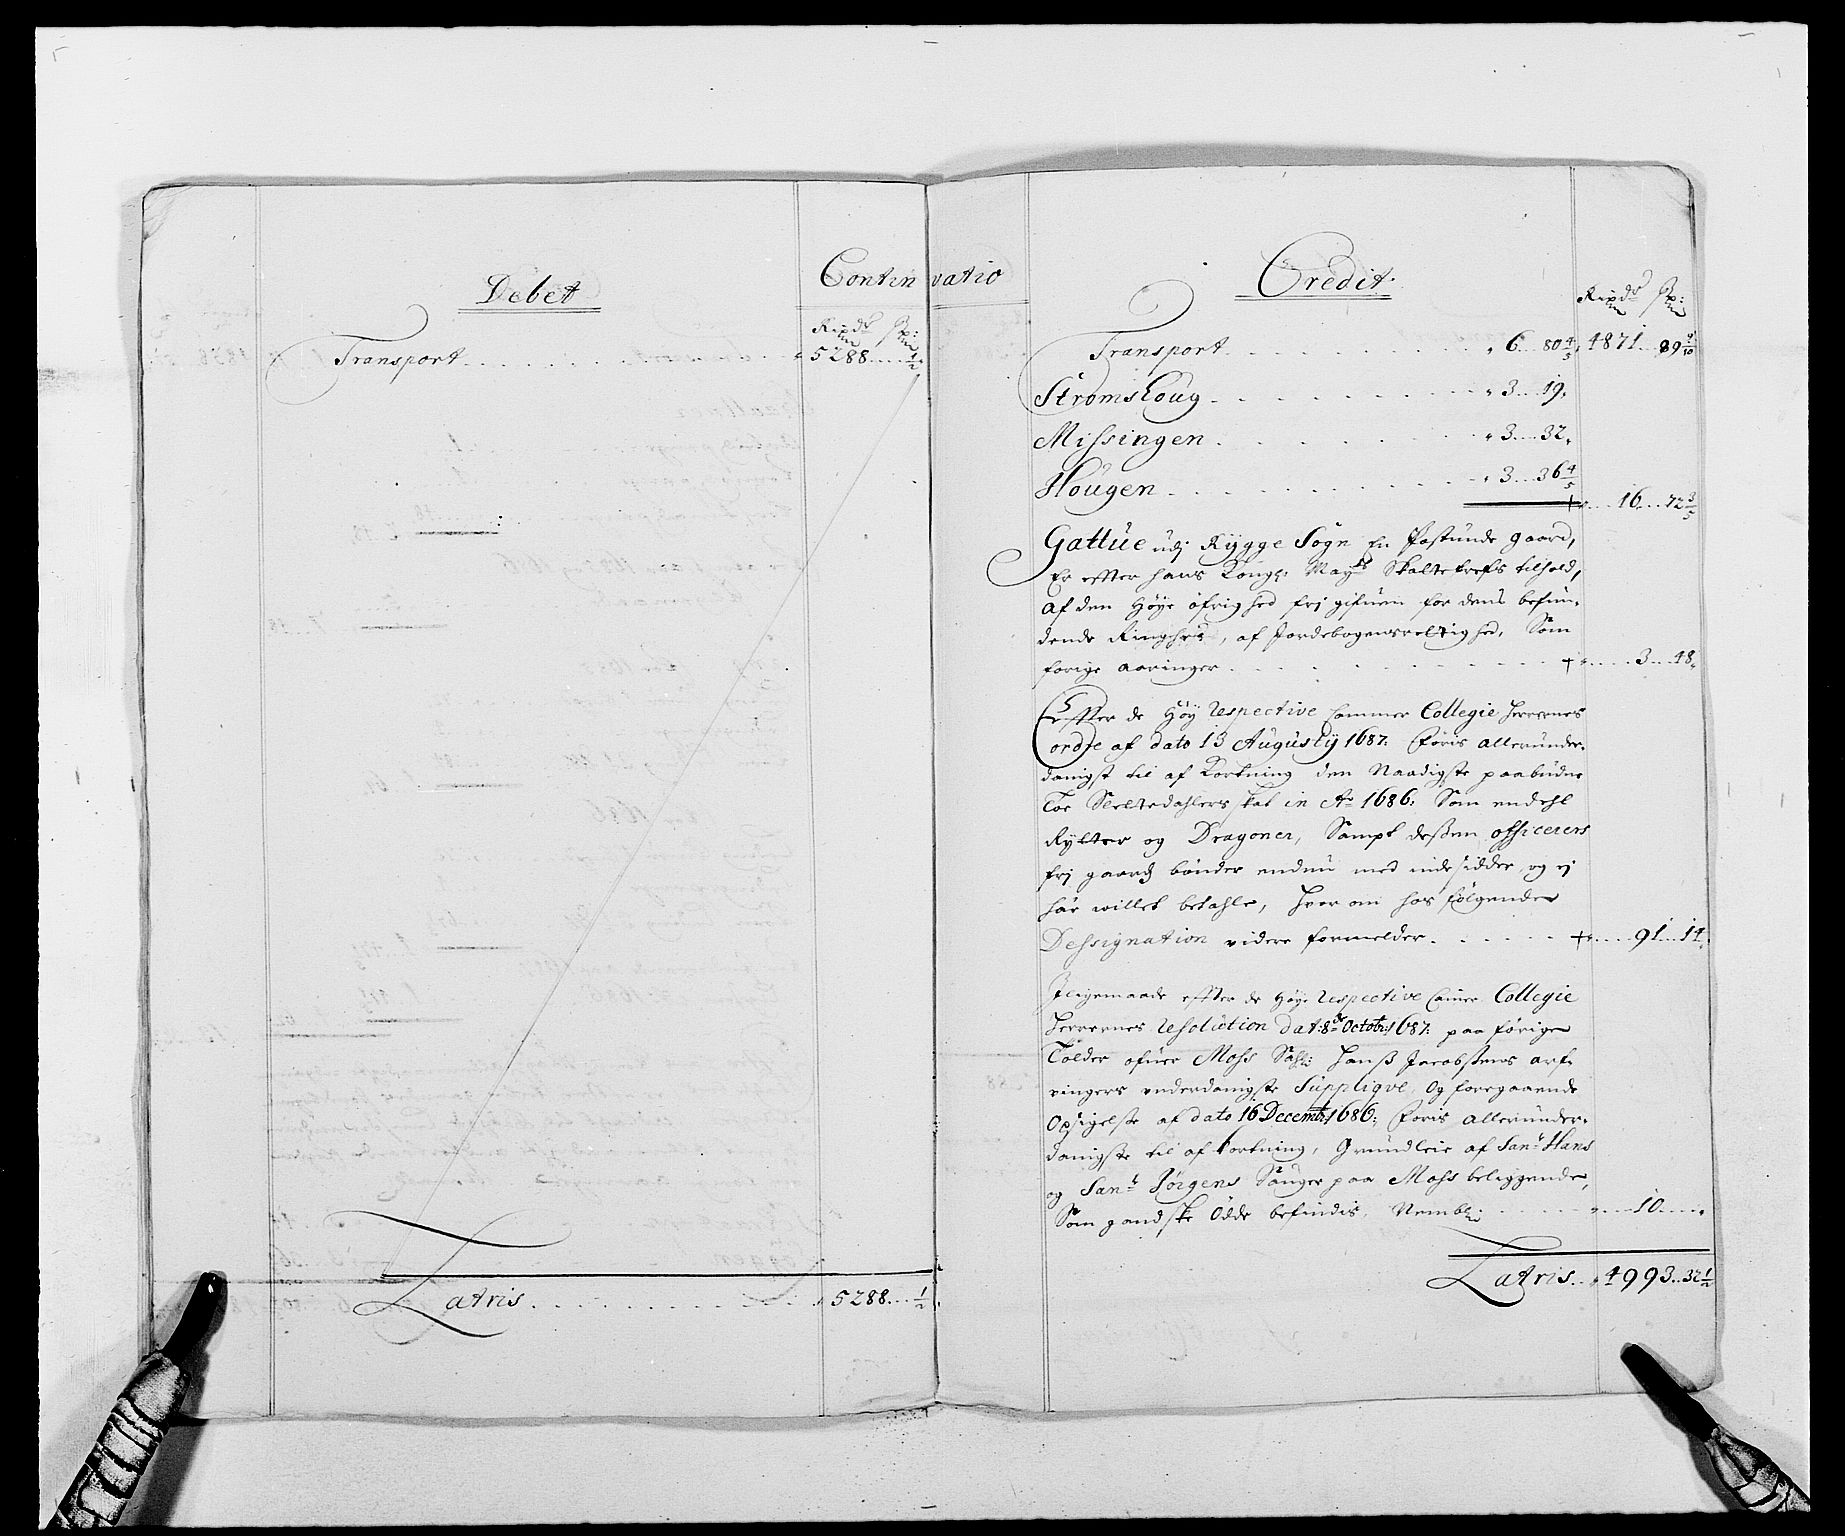 Debet
Continuatio
Rixdr ß:
Transport . . . . . . . . 5288 .... ½
Latris . . . . . . . . . . 5288 .... ½
Credit
Rixdr ß:
Transport . . . . . . . 6 .. 80 4/5 4871 .. 89 9/10
Strømshoug . . . . . . . 3 ... 19.
Missingen . . . . . . . 3 ... 32.
Hougen . . . . . . . . 3 ... 36 4/5
16 ... 72 3/5
Gattüe udj Rygge Sogn En gaard,
Er effter hans Kongl: Mayts tilhold,
af den Høye øfrighed frj gifuen for dens befin-
dende Ringhed, af Jordebogens rettighed, Som
forige aaringer . . . . . . . . . 3 ... 48.
Effter de Høy respective Cammer Collegie Herrernes
ordre af dato 13 Augusty 1687. føris allerunder-
danigst til af Kortning den Naadigste paabudne
Toe Sletedahlers skat in Ao 1686: Som endehl
Rytter og Dragoner, Sampt dessen officerers
frj gaards bønder endnu med indesidder og ej
har willet betahle, hvor om hos følgende
Dessignation videre formelder . . . . . 91 ... 14.
Iligemaade effter de Høye respective Camer Collegie
Herrernes resolution dat: 8de Octobr: 1687. paa forige
Tolder ofuer Moss Sahl: Hanss Jacobssens arf-
vingers underdanigste Suppliqve, Og foregaaende
Opsigelse af dato 16 Decembr: 1686: føris allerunder-
danigste til af kortning, Grundleie af Sanr Hans
og Sanr Jørgens Sauger paa Moss beliggende,
Som gandske Øde befindis, Nembl: . . . . . 10 ....
Latris .. 4993 .. 32 ½